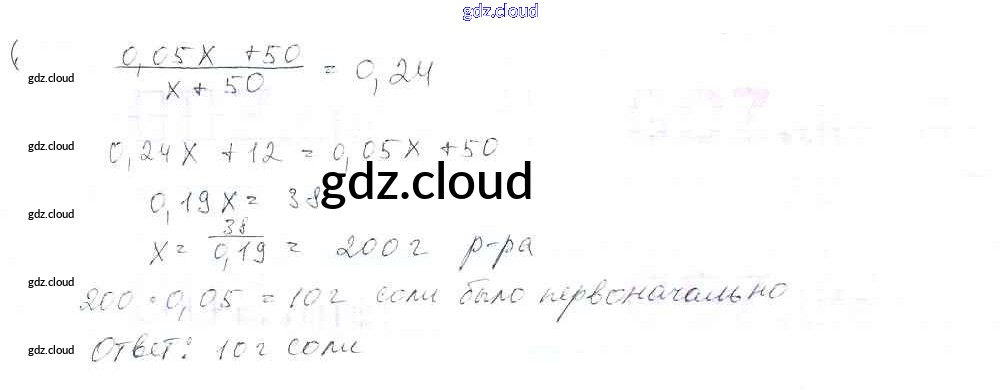 gdz.cloud
(0,05x +50)/(x + 50) = 0,24
gdz.cloud
gdz.cloud
0,24x +12 = 0,05x +50
gdz.cloud
0,19x = 38
gdz.cloud
x = 38/0,19 = 200г р-ра
gdz.cloud
200·0,05 = 10г соли было первоначально
gdz.cloud
Ответ: 10г соли